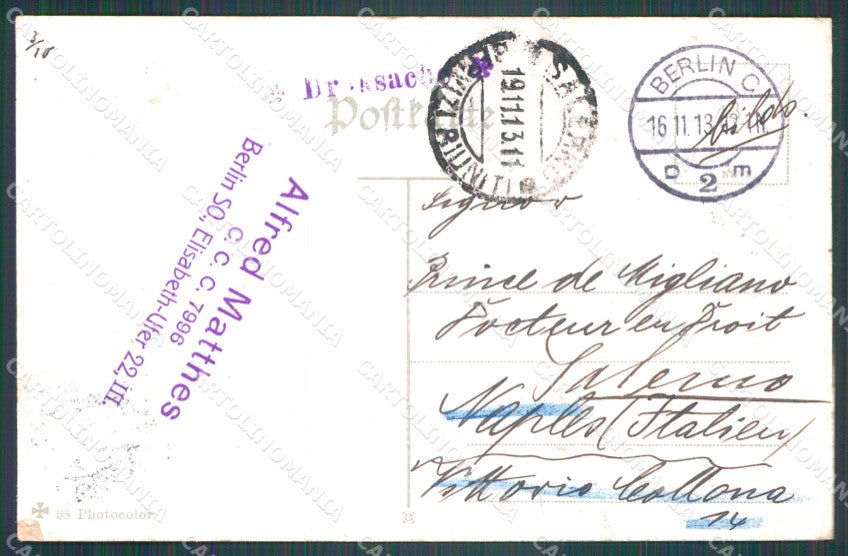 3/10
Drucksache
Postkarte
SALERNO
SERVIZI RIUNITI
19.11.13.11
BERLIN C.
16.11.13
2
m
Alfred Matthes
C. C. C. 7996
Berlin SO., Elisabeth-Ufer 22, III.
Signor
Prince de Migliano
Docteur en Droit
Salerno
Naples (Italien)
Vittorio Collona
14
38 Photocolor
CARTOLINOMANIA